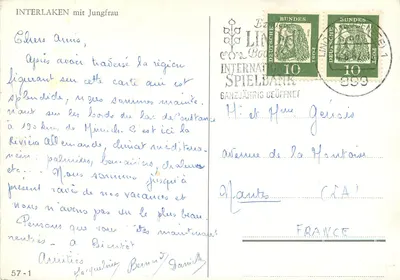 INTERLAKEN mit Jungfrau
Chers Amis,
Après avoir traversé la région
figurant sur cette carte qui est
splendide, nous sommes mainte-
nant sur les bords du lac de
à 190 km de Munich. C'est ici la
Riviera Allemande, climat méditerra-
néen : palmiers, bananiers, chaleur
etc... Nous sommes jusqu'à
présent ravis de nos vacances et
nous n'avons pas vu le plus beau.
Pensons que vous êtes maintenant
rentrés. à Bientôt
Amitiés
Jacqueline Bernard Danielle
57-1
LIN
INTERNAT
SPIELBANK
GANZJÄHRIG GEÖFFNET
DEUTSCHE BUNDESPOST
10
DEUTSCHE BUNDESPOST
10
LINDAU
1
899
M. et Mme
avenue de la
Nantes (LA)
FRANCE